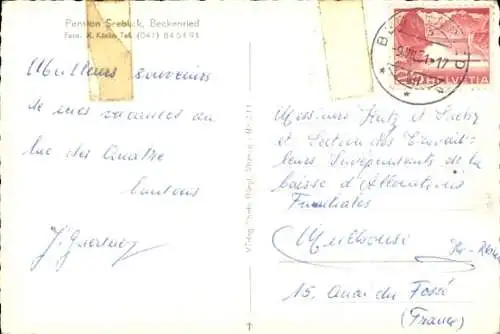 Pension Seeblick, Beckenried
Fam. K. Käslin Tel. (041) 84 51 91
Meilleurs souvenirs
de mes vacances au
lac des Quatre
Cantons
HELVETIA
Messieurs et
et Section des Travail-
leurs Indépendants de la
Caisse d'Allocations
Familiales
Mulhouse
Ht-Rhin
15, Quai du Fossé
(France)